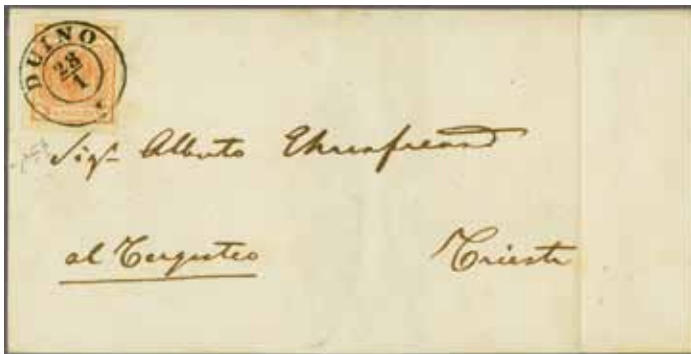 DUINO
28/1
Sigr Alberto Ehrenfreund
al Tergesteo
Trieste